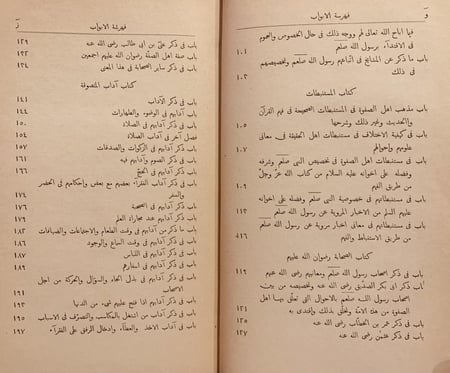 و
فهرسة الابواب
فيما اباح الله تعالى لهم ووجه ذلك فى حال الخصوص والعموم
فى الاقتداء برسول الله صلعم ١٠١
باب ما ذكر عن المشايخ فى اتباعهم رسول الله صلعم وتخصيصهم
فى ذلك ١٠٣
كتاب المستنبطات
باب مذهب اهل الصفوة فى المستنبطات الصحيحة فى فهم القرآن
والحديث وغير ذلك وشرحها ١٠٥
باب فى كيفية الاختلاف فى مستنبطات اهل الحقيقة فى معانى
علومهم واحوالهم ١٠٧
باب فى مستنبطات اهل الصفوة فى تخصيص النبى صلعم وشرفه
وفضله على اخوانه عليه السلام من كتاب الله عز وجل
من طريق الفهم ١٠٩
باب فى مستنبطاتهم فى خصوصية النبى صلعم وفضله على اخوانه
عليهم السلم من الاخبار المروية عن رسول الله صلعم ١١٣
باب فى مستنبطاتهم فى معانى اخبار مروية عن رسول الله صلعم
من طريق الاستنباط والفهم ١١٦
كتاب الصحابة رضوان الله عليهم
باب فى ذكر اصحاب رسول الله صلعم ومعانيهم رضى الله عنهم ١١٩
باب ذكر ابى بكر الصديق رضى الله عنه وتخصيصه من بين
اصحاب رسول الله صلعم بالاحوال التى تعلق بها اهل
الصفوة من هذه الامة وتخلق بذلك واقتدى به ١٢١
باب فى ذكر عمر بن الخطاب رضى الله عنه ١٢٥
باب فى ذكر عثمن رضى الله عنه ١٢٧
فهرسة الابواب
ز
باب فى ذكر على بن ابى طالب رضى الله عنه ١٢٩
باب صفة اهل الصفة رضوان الله عليهم اجمعين ١٣٢
باب فى ذكر ساير الصحابة فى هذا المعنى ١٣٤
كتاب آداب المتصوفة
باب فى ذكر الآداب ١٤١
باب آدابهم فى الوضوء والطهارات ١٤٤
باب فى ذكر آدابهم فى الصلاة ١٥٠
فصل آخر فى آداب الصلاة ١٥٤
باب ذكر آدابهم فى الزكوات والصدقات ١٥٧
باب فى ذكر الصوم وآدابهم فيه ١٦٠
باب ذكر آدابهم فى الحج ١٦٦
باب فى ذكر آداب الفقراء بعضهم مع بعض واحكامهم فى الحضر
والسفر ١٧٤
باب ذكر آدابهم فى الصحبة ١٧٦
باب ذكر آدابهم عند مجاراة العلم ١٧٩
باب ما ذكر من آدابهم فى وقت الطعام والاجتماعات والضيافات ١٨٣
باب فى ذكر آدابهم فى وقت السماع والوجود ١٨٦
باب فى ذكر آدابهم فى اللباس ١٨٧
باب فى ذكر آدابهم فى اسفارهم ١٨٩
باب فى ذكر آدابهم فى بذل الجاه والسؤال والحركة من اجل
الاصحاب ١٩١
باب فى ذكر آدابهم اذا فتح عليهم شىء من الدنيا ١٩٣
باب فى ذكر آداب من اشتغل بالمكاسب والتصرف فى الاسباب ١٩٥
باب فى آداب الاخذ والعطاء وادخال الرفق على الفقراء ١٩٧